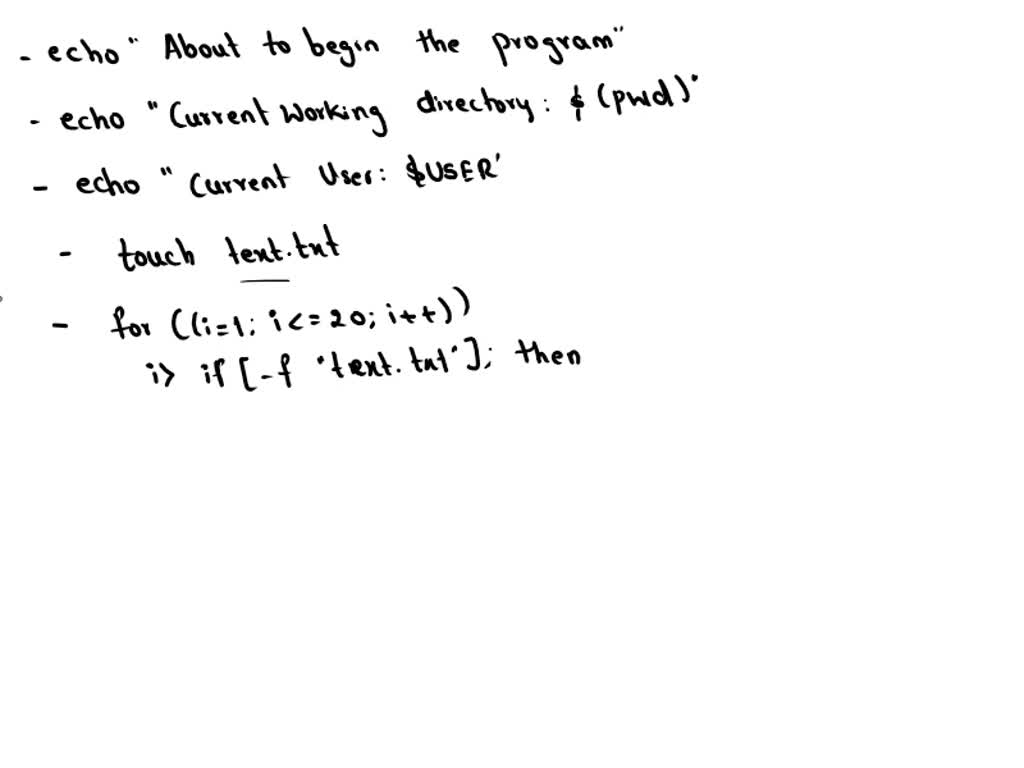 - echo " About to begin the program"
- echo "Current Working directory: $ (pwd)"
- echo " Current User: $USER'
- touch text.txt
- for ((i=1; i<=20; i++))
i> if [-f "text.txt"]; then